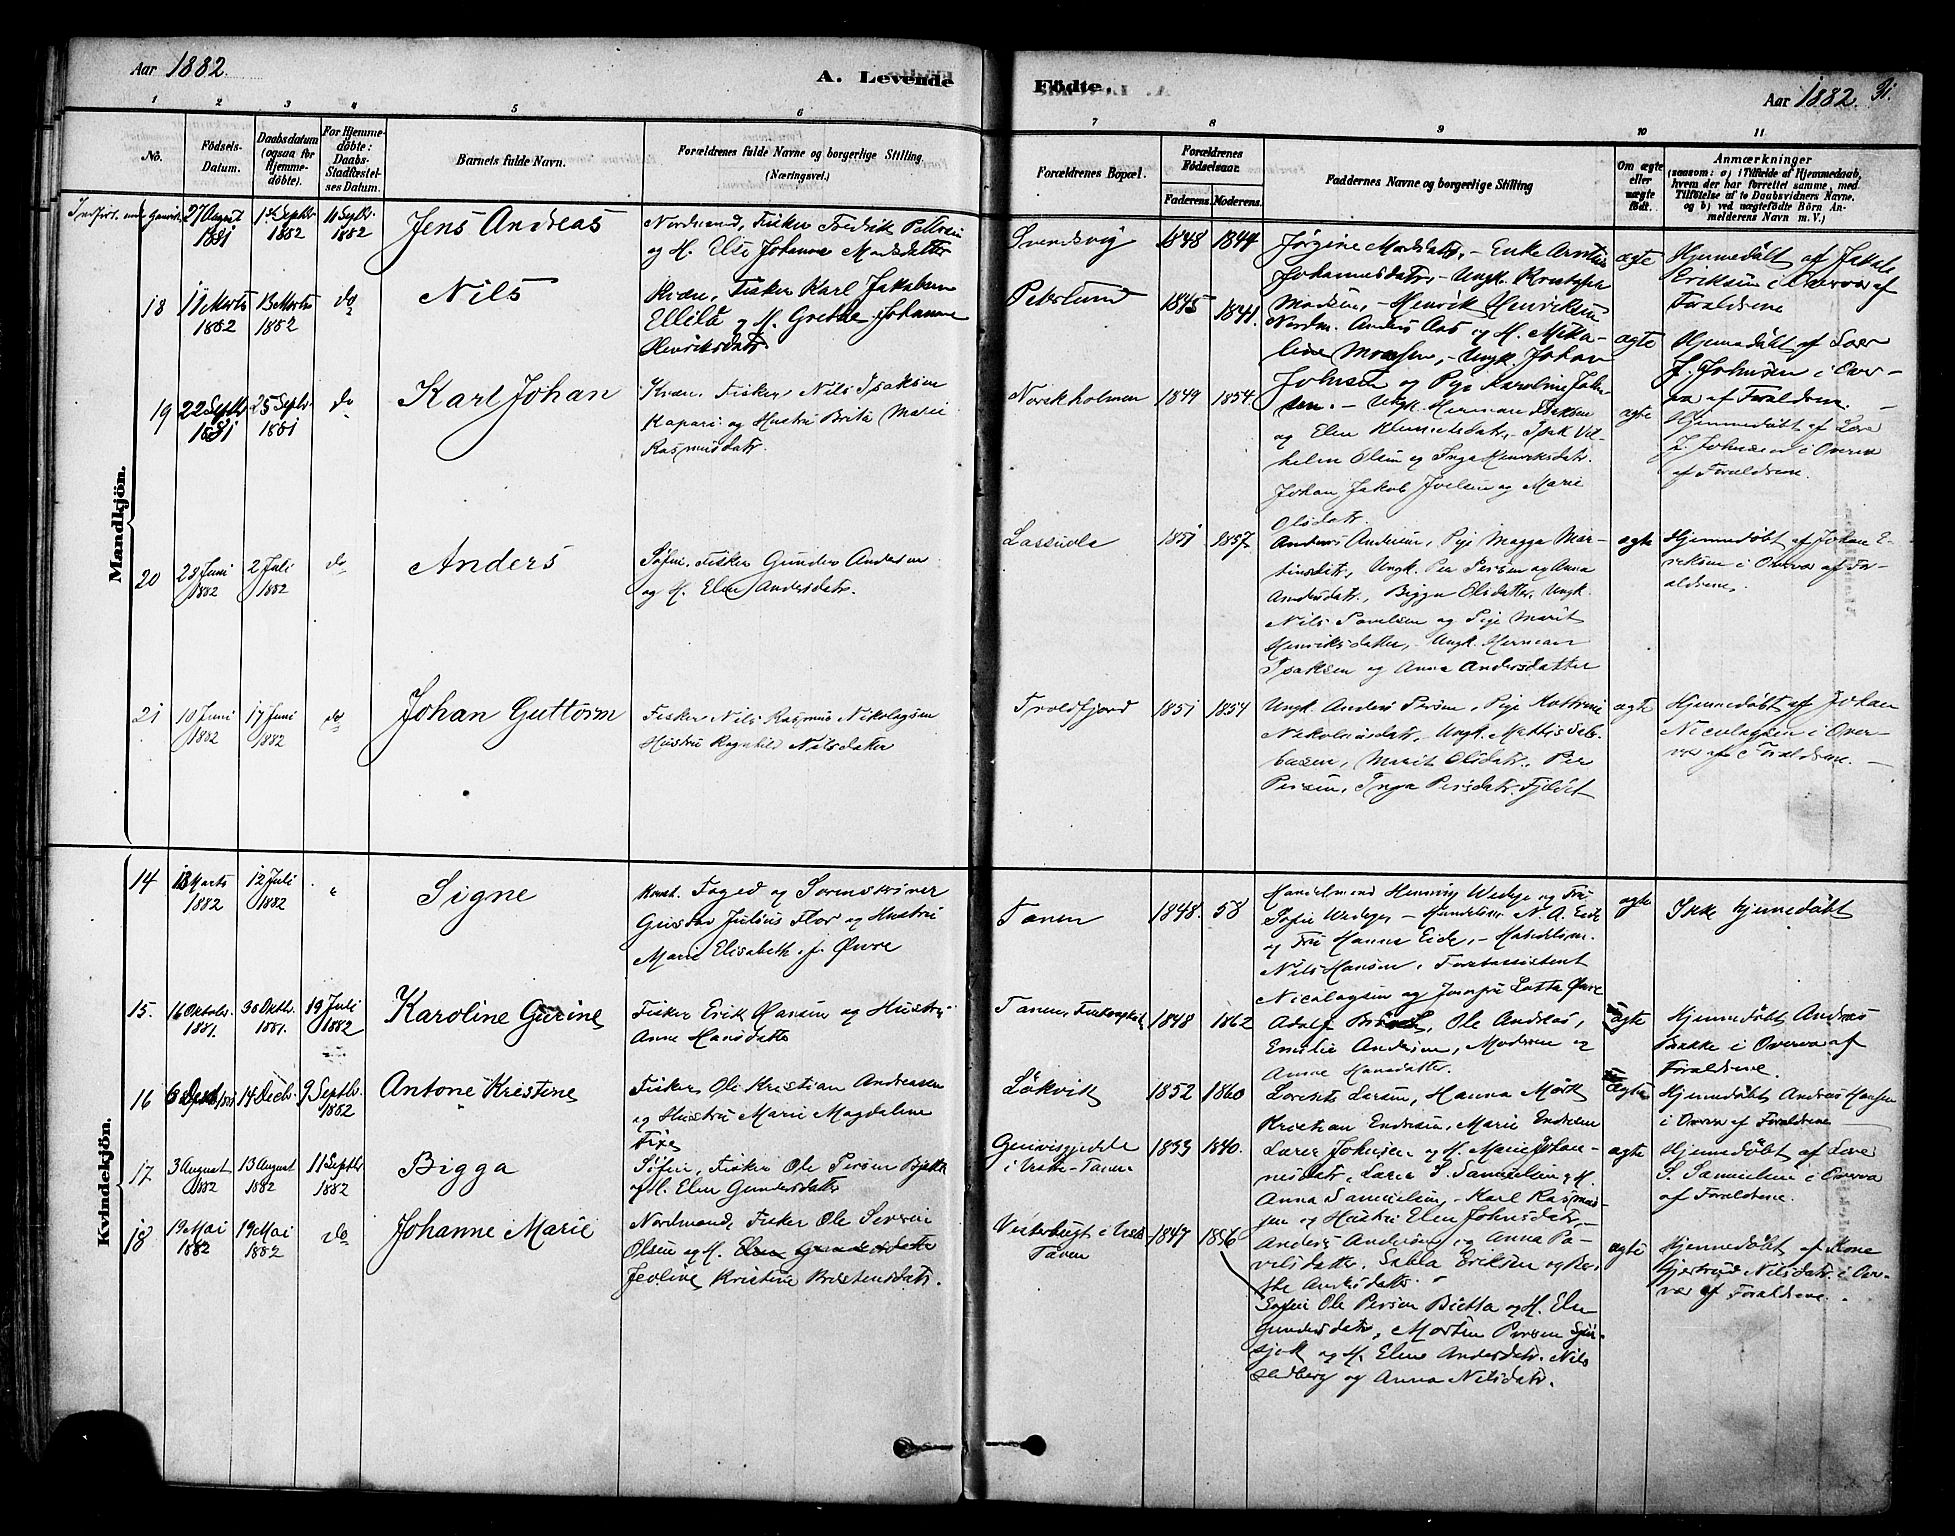 Aar 1882.
A. Levende
Fødte.
Aar 1882. 31.
1 2 3 4 5 6 7 8 9 10 11
No.
Fødsels-
Datum.
Daabsdatum
(ogsaa for
Hjemme-
døbte).
For Hjemme-
døbte:
Daabs-
Stadfæstel-
ses Datum.
Barnets fulde Navn.
Forældrenes fulde Navne og borgerlige Stilling
(Næringsvei.)
Forældrenes Bopæl.
Forældrenes
Fødselsaar.
Faderens. Moderens.
Faddernes Navne og borgerlige Stilling
Om ægte
eller
uægte
født.
Anmærkninger
(saasom: a) i Tilfælde af Hjemmedaab,
hvem der har forrettet samme, med
Tilføielse af to Daabsvidners Navne.
og b) ved uægtefødte Børn An-
melderens Navn m. V.)
Mandkjön.
27 August
1881
1ste Septbr
1882
10 Septbr.
1882
Jens Andreas
Nordmand, Fisker Fredrik Pettersen
og H. Elle Johanna Madsdatter
Svendsvig
1848 1844
Jørgine Madsdatr, - Enke
Johannesdatr, - Ungk.
Madsen, - Henrik Henriksen
ægte
Hjemmedøbt af Jakob
Eriksen i Overvær af
Forældrene
18
11 Marts
1882
13 Marts
1882
do
Nils
Kvæn, Fisker Karl Jakobsen
og H. Grethe Johanne
Henriksdatr.
1845 1841.
Nordm. Anders Aas og H. Mika-
line Monsen, - Ungk. Johan
Johnsen og Pige Karoline John-
sen. -
ægte
Hjemmedøbt af Lær
J. Johnsen i Over-
vær af Forældrene.
19
22 Septbr
1881
25 Septbr
1881
do
Karl Johan
Kvæn, Fisker Nils Isaksen
og Hustru Brita Marie
Rasmusdatr.
Norskholmen
1849 1854.
Ungk. Herman Isaksen
og Elen Klemetsdatr, - Isak Vil-
helm Olsen og Inga Henriksdatr.
Johan Jakob Joelsen og Marie
Olsdatr.
ægte
Hjemmedøbt af Lære
J. Johnsen i Overvær
af Forældrene.
20
28 Juni
1882
2 Juli
1882
do
Anders
Søfin. Fisker Gunder Andersen
og H. Elen Andersdatr.
1851 1857
Anders Andersen, Pige Magga Mar-
tinsdatr, Ungk. Per Persen og Anna
Andersdatr, Bigga Olsdatter, Ungk.
Nils Povelsen og Pige Marit
Henriksdatter, - Ungk. Herman
Isaksen og Anna Andersdatter
ægte
Hjemmedøbt af Johan E-
riksen i Overvær af For-
ældrene.
21
10 Juni
1882
17 Juni
1882
do
Johan Guttorm
Fisker Nils Rasmus Nikolaysen
Hustru Ragnhild Nilsdatter
Troldfjord
1851 1854
Ungk. Anders Persen, Pige
Nikolaisdatr, Ungk. Mattis
Marit Olsdatr, Per
Persen, Inga Persdatr.
ægte
Hjemmedøbt af Johan
Nicolaysen i Over-
vær af Forældrene. -
Kvindekjön.
14
Marts
1882
12 Juli
1882
"
Signe
Konst. Foged og Sorenskriver
Gustav Julius Flor og Hustru
Marie Elisabeth f. Øwre
Tanen
1848. 58
Handelsmand Henning Wedege og Fru
Sofie Wedege, - Handelsm. N. A. Eide
og Fru Hanna Eide, - Handelsm.
Nils Hansen, Forstassistent
Nicolaysen og Jomfru Lotta Øwre
ægte
Ikke hjemedøbt
15.
16 Oktober
1881.
30 Oktbr.
1881.
19 Juli
1882
Karoline Gurine
Fisker Erik Hansen og Hustru
Anne Hansdatter
Tanen,
1848 1862
Adolf Ole Andreas,
Emilie Andersen, Moderen og
Anne Hansdatter.
ægte
Hjemmedøbt Andreas
Bakke i Overvær af
Forældrene.
16
14 Decbr.
9 Septbr.
1882
Antone Kristine
Fisker Ole Kristian Andreassen
og Hustru Marie Magdalene
Løkvik
1852 1860
Larsen, Hanna Mørk
Kristian Endresen, Marie Endresen
ægte
Hjemmedøbt Andreas Hansen
i Overvær af Forældrene
17
3 August
1882
13 August
1882
11 Septbr
1882
Bigga
Søfin, Fisker Ole Persen
og H. Elen Gundersdatter
i Vestre-Tanen
1833 1840.
Johnsen og H. Marie Johan-
nesdatr, S. Samuelsen og H.
Anna Samuelsen, - Karl Rasmus-
sen og Hustru Elen Johnsdatr, -
Anders Andersen og Anna Pa-
velsdatter, Sabba Eriksen og
Andersdatter.
ægte
Hjemmedøbt af Lære
S. Samuelsen i Overvær
af Forældrene.
18
19 Mai
1882
19 Mai
1882
do
Johanne Marie
Nordmand, Fisker Ole Severin
Olsen og H. Elen Gundersdatter
Jenline Kristine
Vesterbugt i Vest
Tanen
1847 1856
Søfin Ole Persen og H. Elen
Gundersdatr, Morten Persen
og H. Elene Andersdatr. Nils
og Anna Nilsdatr.
ægte
Hjemmedøbt af Kone
Gjertrud Nilsdatr. i Over-
vær af Forældrene.